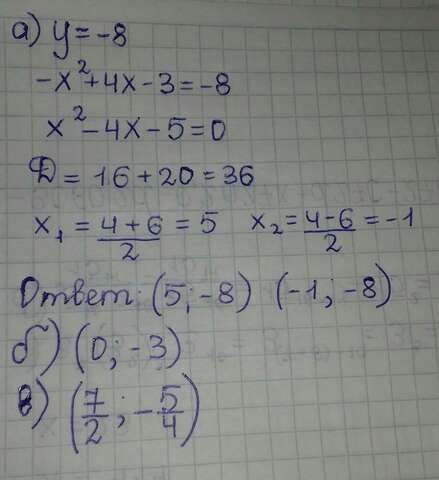 а) y = -8
-x²+4x-3=-8
x²-4x-5=0
D = 16+20=36
x₁ = (4+6)/2 = 5 x₂ = (4-6)/2 = -1
Ответ: (5; -8) (-1; -8)
б) (0; -3)
в) (7/2; -5/4)